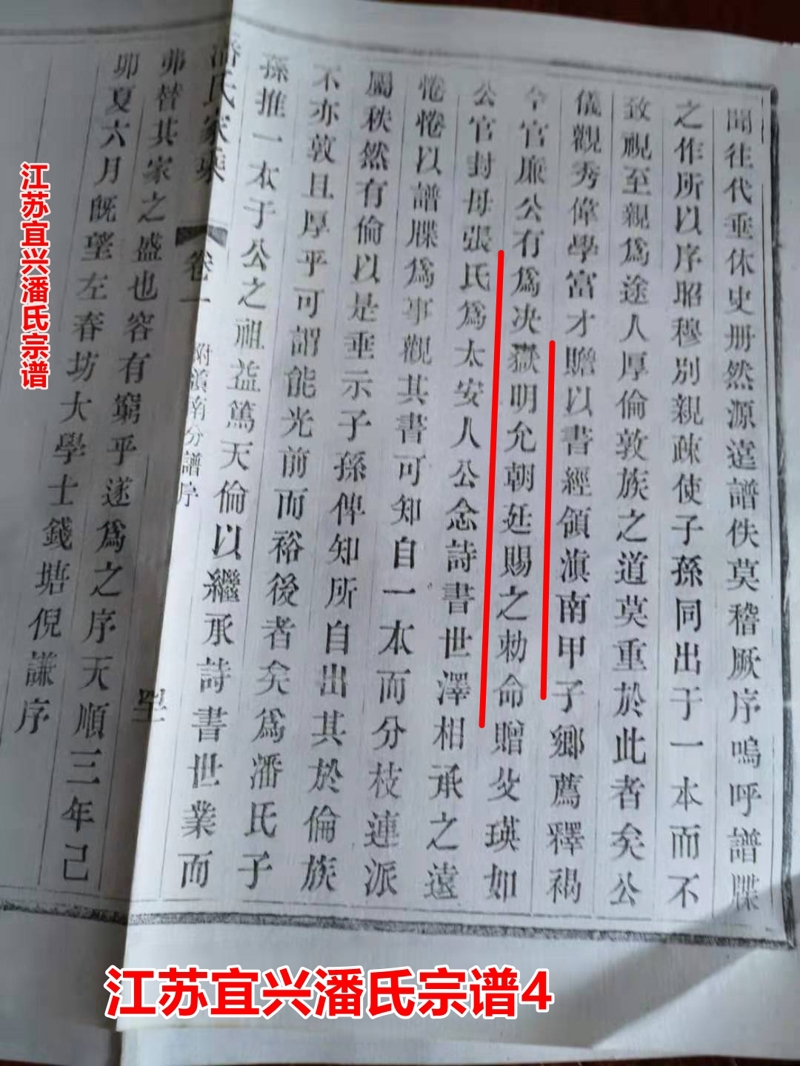 聞往代垂休史册然源遠譜佚莫稽厥序嗚呼譜牒
之作所以序昭穆別親疎使子孫同出于一本而不
致視至親爲途人厚倫敦族之道莫重於此者矣公
儀觀秀偉學富才贍以書經領滇南甲子鄉薦釋褐
令官廉公有爲决獄明允朝廷賜之勅命贈父瑛如
公官封母張氏爲太安人公念詩書世澤相承之遠
惓惓以譜牒爲事觀其書可知自一本而分枝連派
屬秩然有倫以是垂示子孫俾知所自出其於倫族
不亦敦且厚乎可謂能光前而裕後者矣爲潘氏子
孫推一本于公之祖益篤天倫以繼承詩書世業而
潘氏家乘
卷一
附嶺南分譜序
弗替其家之盛也容有窮乎遂爲之序天順三年己
卯夏六月旣望左春坊大學士錢塘倪謙序
江苏宜兴潘氏宗谱
江苏宜兴潘氏宗谱4